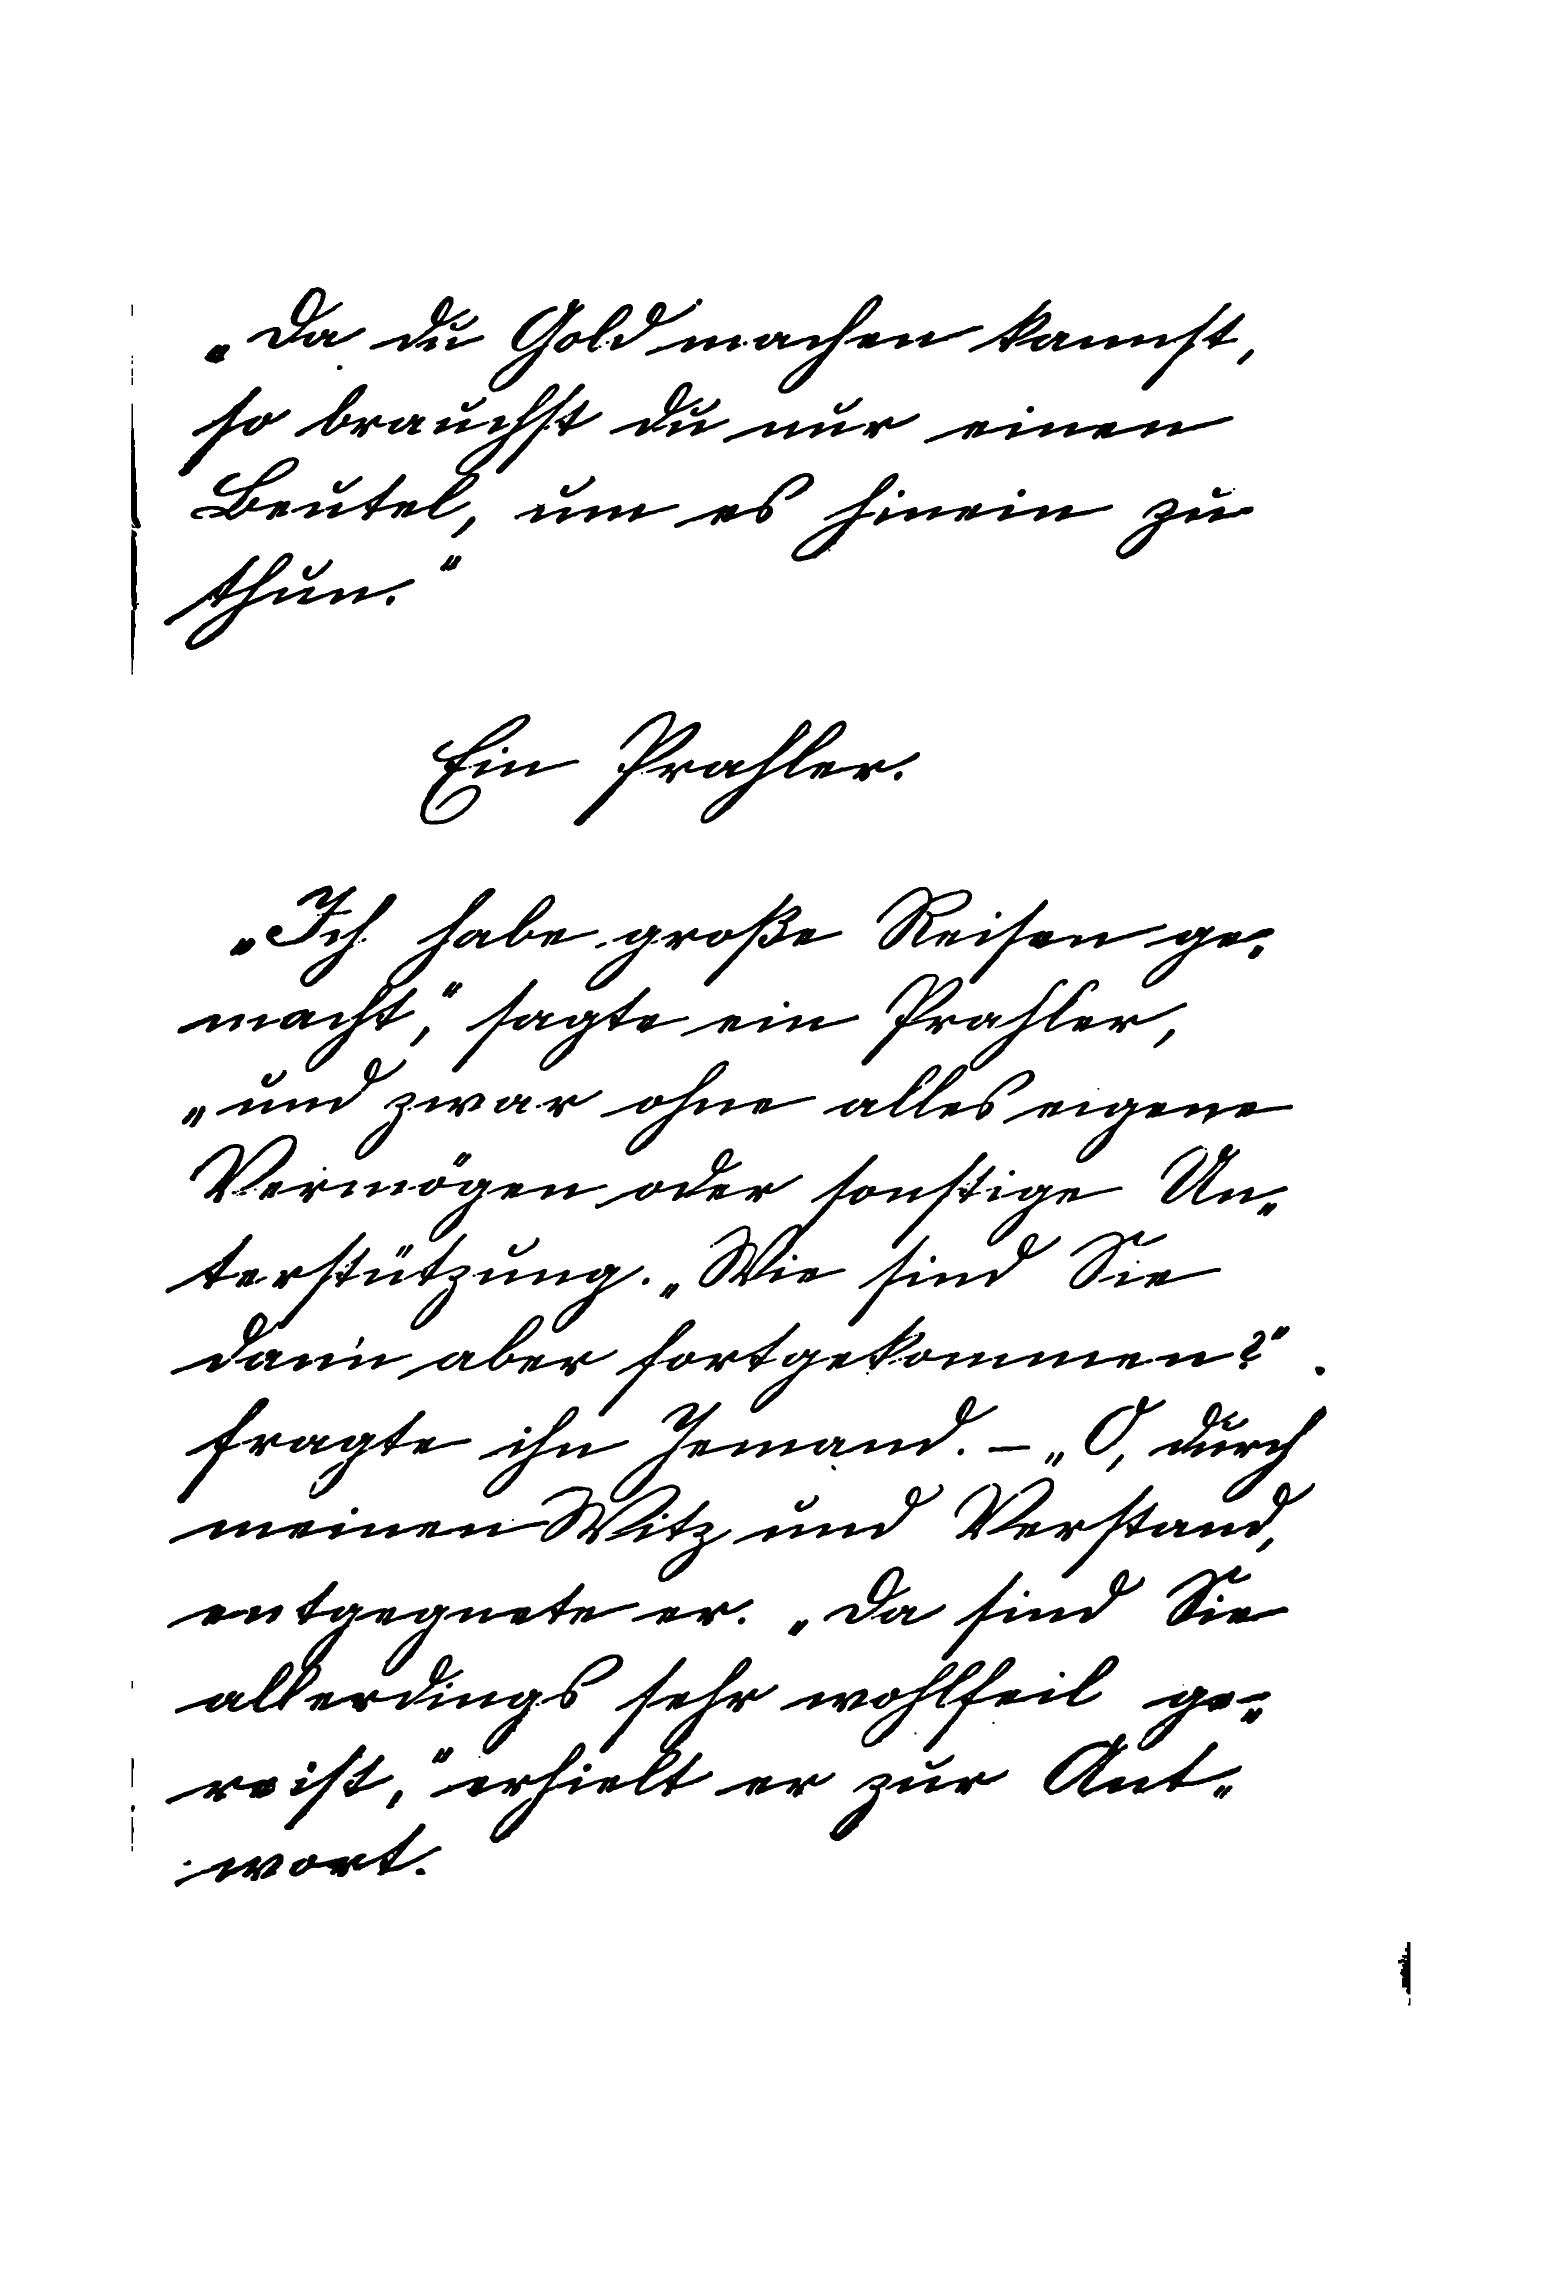 „Da du Gold machen kannst,
so brauchst du nur einen
Beutel, um es hinein zu
thun.“
Ein Prahler.
„Ich habe große Reisen ge-
macht,“ sagte ein Prahler,
„und zwar ohne alles eigene
Vermögen oder sonstige Un-
terstützung. „Wie sind Sie
dann aber fortgekommen?“
fragte ihn Jemand. – „O, durch
meinen Witz und Verstand,
entgegnete er. „Da sind Sie
allerdings sehr wohlfeil ge-
reist,“ erhielt er zur Ant-
wort.